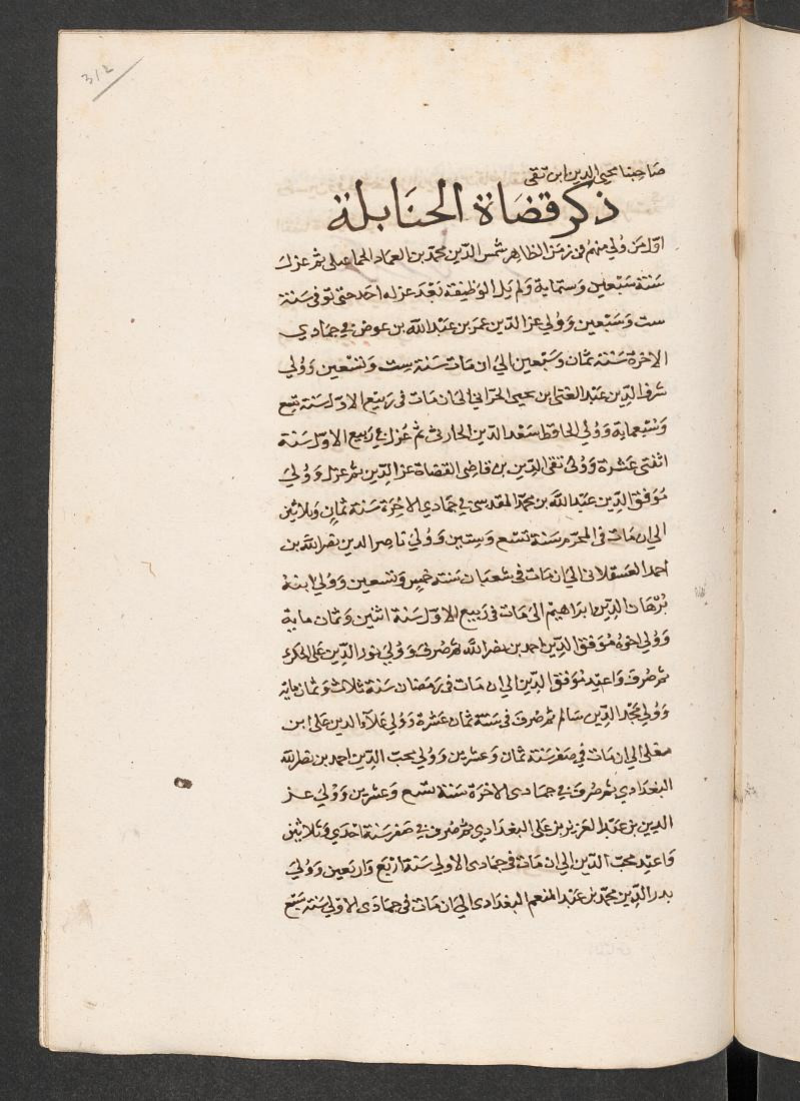 312
صاحبنا محيي الدين ابن تقى
ذكر قضاة الحنابلة
اول من ولي منهم في زمن الظاهر شمس الدين محمد بن العماد الجماعيلى ثم عزل
سنة سبعين وستماية ولم يل الوظيفة بعد عزله احد حتى توفى سنة
ست وسبعين وولي عز الدين عمر بن عبد الله بن عوض في جمادي
الاخرة سنة ثمان وسبعين الي ان مات سنة ست وتسعين وولي
شرف الدين عبد الغني بن يحيى الحراني الى ان مات فى ربيع الاول سنة تسع
وسبعماية وولي الحافظ سعد الدين الحارثى ثم عزل في ربيع الاول سنة
اثنتى عشرة وولى تقى الدين بن قاضى القضاة عز الدين ثم عزل وولي
موفق الدين عبد الله بن محمد المقدسي في جمادي الاخرة سنة ثمان وثلاثين
الى ان مات فى المحرم سنة تسع وستين وولي ناصر الدين نصر الله بن
احمد العسقلانى الي ان مات فى شعبان سنة خمس وتسعين وولي ابنه
برهان الدين ابراهيم الى مات فى ربيع الاول سنة اثنين وثمان ماية
وولى اخوه موفق الدين احمد بن نصر الله ثم صرف وولي نور الدين على الحكرى
ثم صرف واعيد موفق الدين الي ان مات فى رمضان سنة ثلاث وثمان ماية
وولي مجد الدين سالم ثم صرف فى سنة ثمان عشرة وولي علاء الدين على ابن
مغلى الي ان مات فى صفر سنة ثمان وعشرين وولي محب الدين احمد بن نصر الله
البغدادي ثم صرف في جمادى الاخرة سنة تسع وعشرين وولي عز
الدين بن عبد العزيز بن على البغدادي ثم صرف في صفر سنة احدي وثلاثين
واعيد محب الدين الي ان مات فى جمادى الاولي سنة اربع واربعين وولي
بدر الدين محمد بن عبد المنعم البغدادى الي ان مات فى جمادى الاولي سنة سبع